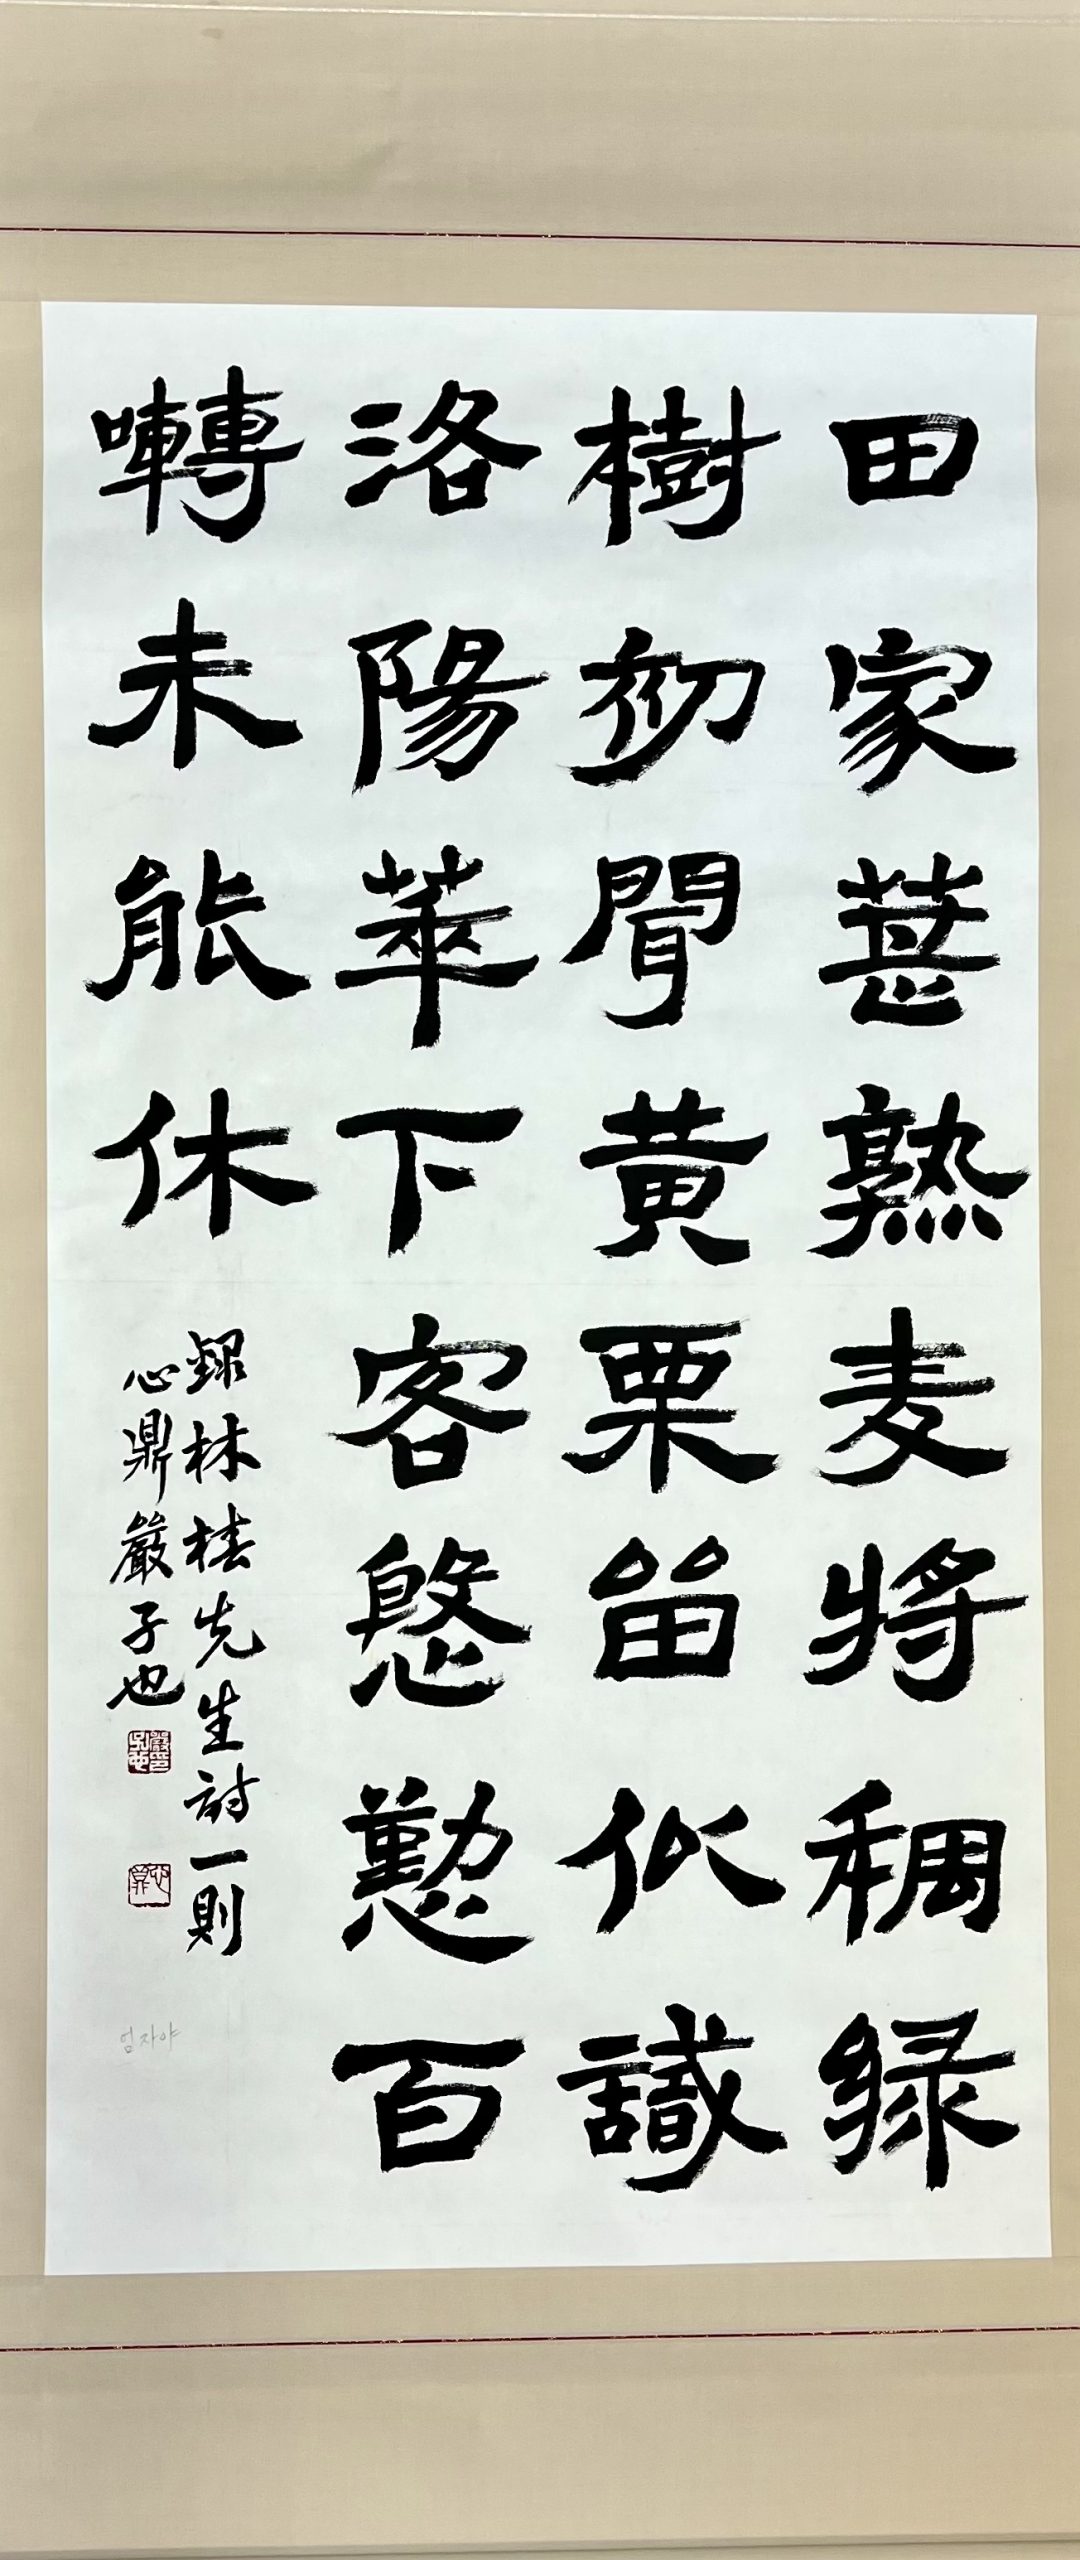 田家葚熟麦將稠緑
樹初聞黄栗留似識
洛陽華下客慇懃百
囀未能休
錄林椿先生詩一則
心鼎嚴子也
엄자야